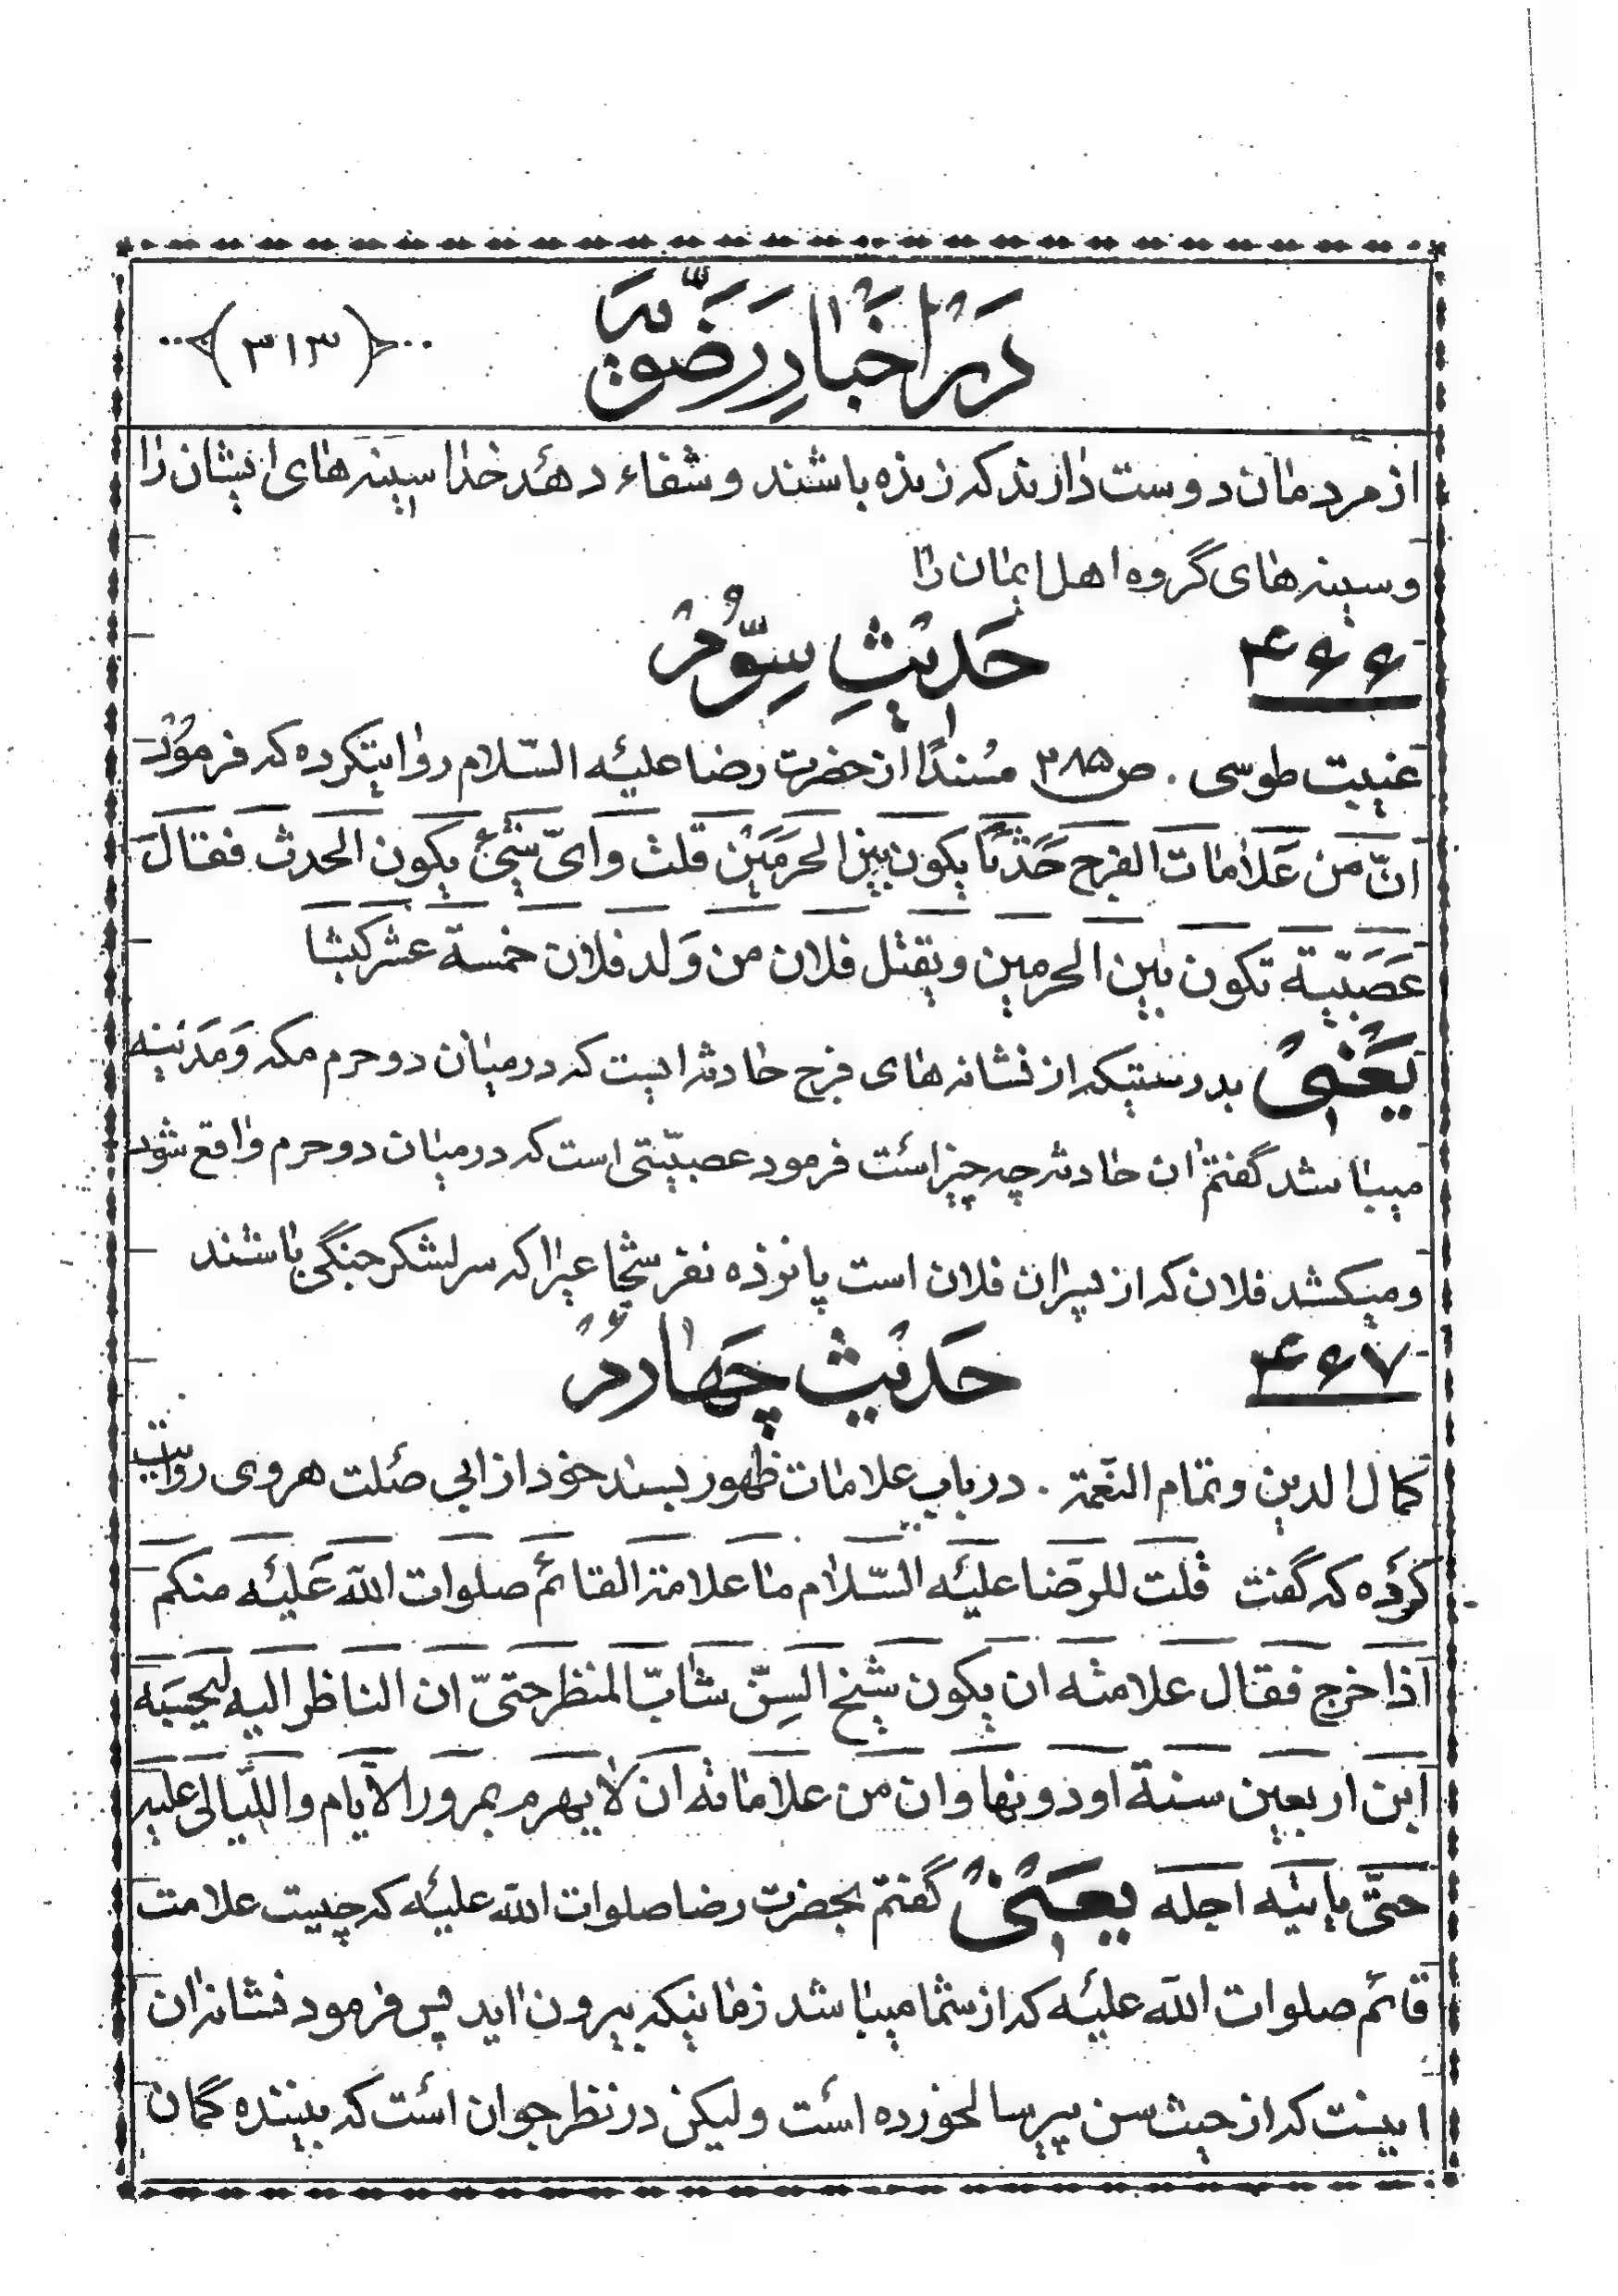 در اخبار رضویّه
(۳۱۳)
از مردمان دوست دارند که زنده باشند و شفاء دهد خدا سینه‌های ایشان را
و سینه‌های گروه اهل ایمان را
۴۶۶
حَدیثِ سِوُّم
غیبت طوسی . ص ۳۸۵ مُسنداً از حضرت رضا علیه السّلام روایتکرده که فرمود
انّ من عَلامات الفرج حَدَثاً یکون بین الحرمَین قلت و ایّ شیئ یکون الحدث فقال
عَصَبیّة تکون بین الحرمین و یقتل فلان من وَلد فلان خمسة عشر کبشا
یَعنی بدرستیکه از نشانه‌های فرج حادثه ایست که در میان دو حرم مکه وَمَدینه
میباشد گفتم ان حادثه چه چیز است فرمود عصبیّتی است که در میان دو حرم واقع شود
و میکشد فلان که از پسران فلان است پانزده نفر شجاعیرا که سرلشکر جنگی باشند
۴۶۷
حَدیث چَهارُم
کمال الدین و تمام النعمة . در باب علامات ظهور بسند خود از ابی صلت هروی روایت
کرده که گفت قلت للرضا علیه السّلام ما علامة القائم صلوات الله عَلیه منکم
اذا خرج فقال علامته ان یکون شیخ السِنّ شابّ المنظر حتیّ ان الناظر الیه لیحسَبه
ابن اربعین سنة او دونها و ان من علاماته ان لا یهرم بمرور الایام و اللیالی علیه
حتّی یاتیه اجله یعنی گفتم بحضرت رضا صلوات الله علیه که چیست علامت
قائم صلوات الله علیه که از شما میباشد زمانیکه بیرون اید پس فرمود نشانه ان
اینست که از حیث سن پیر سالخورده است و لیکن در نظر جوان است که بیننده گمان